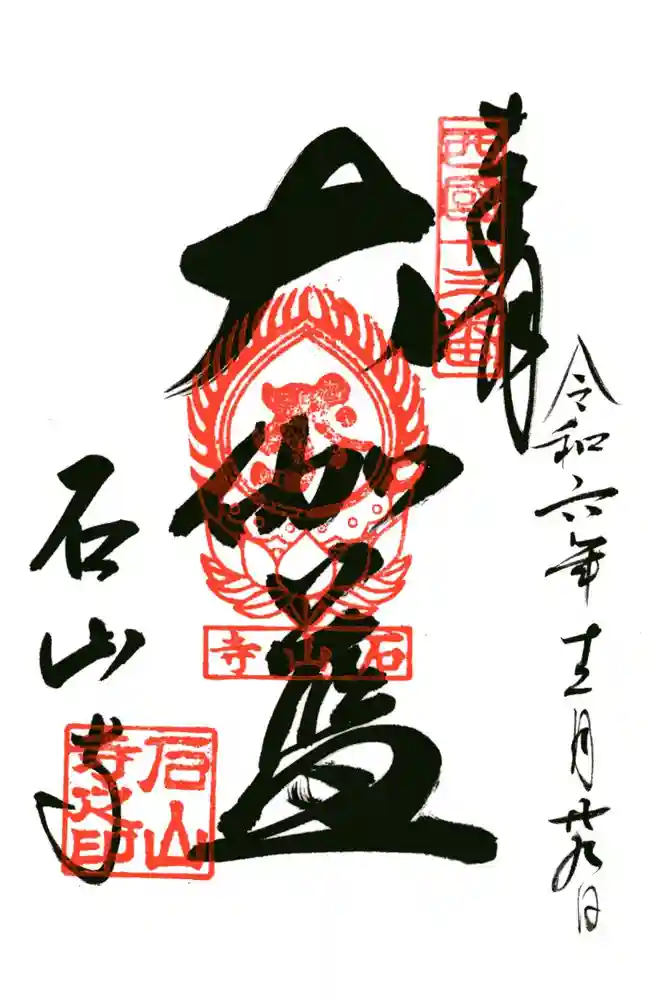 令和六年十二月廿九日
奉拝
西國十三番
大伽藍
石山寺
石山寺
石山
寺之印